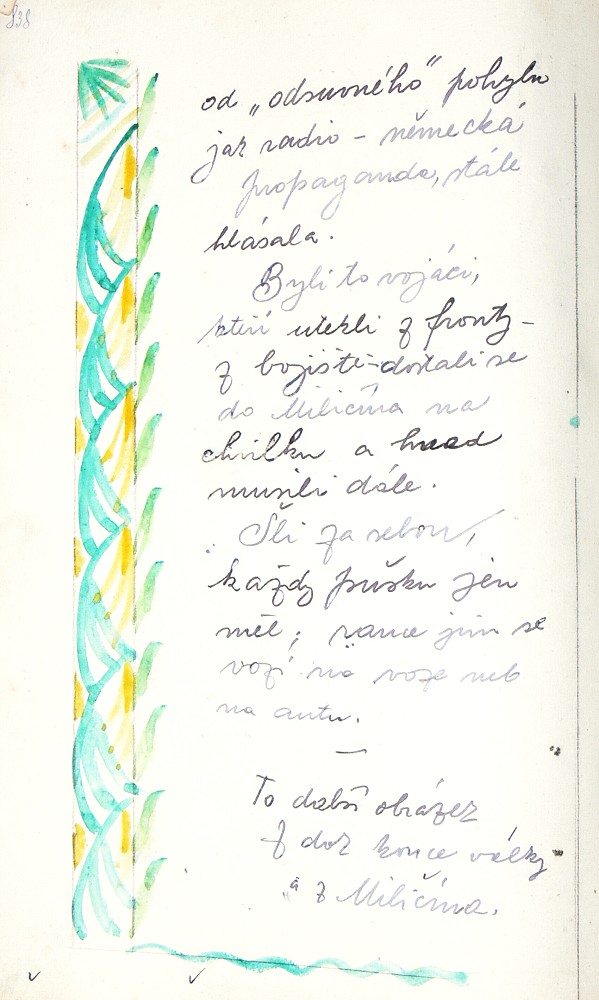 838
od „odsuvného" pohybu
jak radio – německá
propaganda, stále
hlásala.
Byli to vojáci,
kteří utekli z fronty –
z bojiště – dostali se
do Miličína na
chvilku a hned
musili dále.
Šli za sebou,
každý pušku jen
měl; rance jim se
vozí na voze neb
na autu.
—
To další obrázek
z dob konce války
a z Miličína.